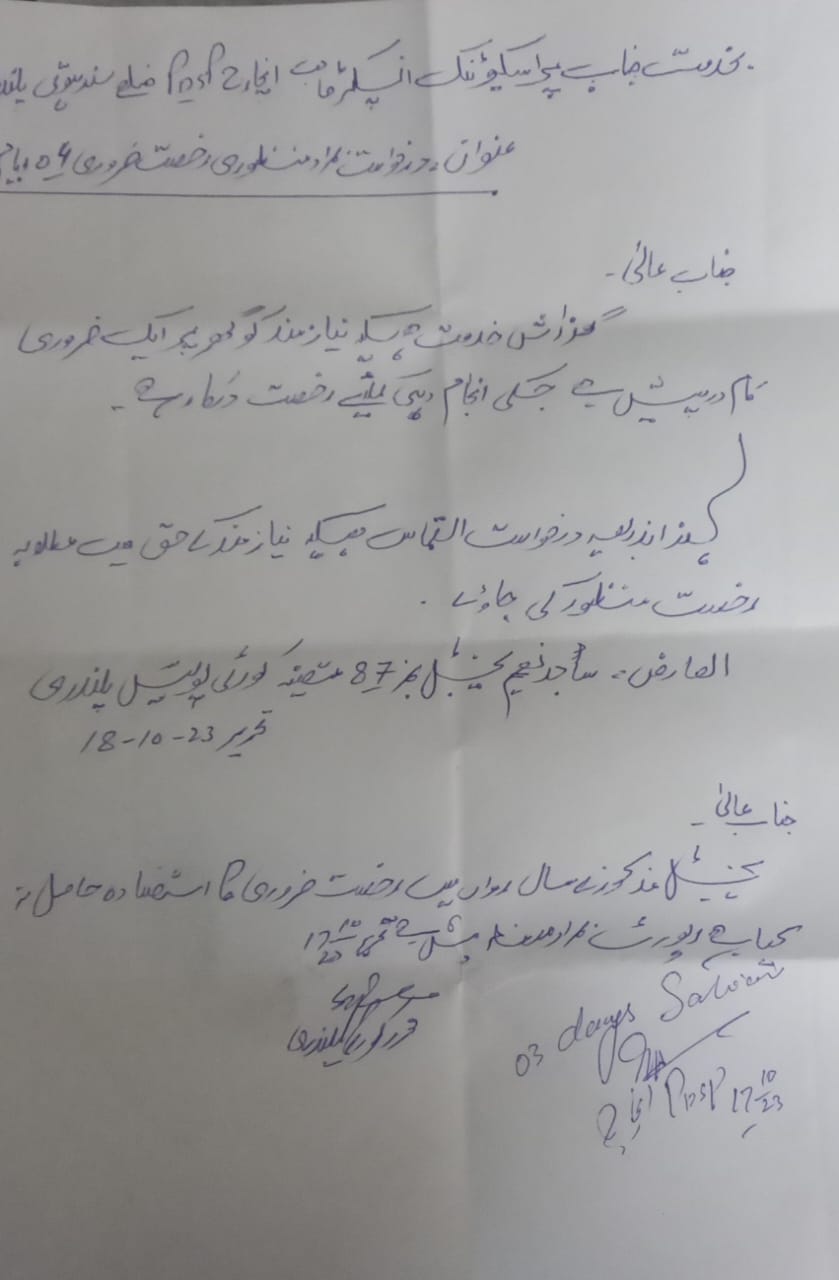 بخدمت جناب پراسیکیوٹنگ انسپکٹر صاحب انچارج PDSP ضلع سدھنوتی
عنوان: درخواست بمراد منظوری رخصت ضروری
جناب عالی۔
گزارش خدمت ہیکہ نیازمند کو گھر پر ایک ضروری
کام درپیش ہے جسکی انجام دہی کیلئے رخصت درکار ہے۔
لہذا بذریعہ درخواست التماس ہیکہ نیازمند کے حق میں مطلوبہ
رخصت منظور کی جاوے ۔
العارض: ساجد نعیم کنسٹیبل نمبر 87 متعینہ کورٹ پولیس پلندری
تحریر 18-10-23
جناب عالی۔
کنسٹیبل مذکور نے سال رواں میں رخصت ضروری کا استفادہ حاصل نہ
کیا ہے رپورٹ بمراد ملاحظہ پیش ہے
03 days
انچارج PDSP 17 10/23